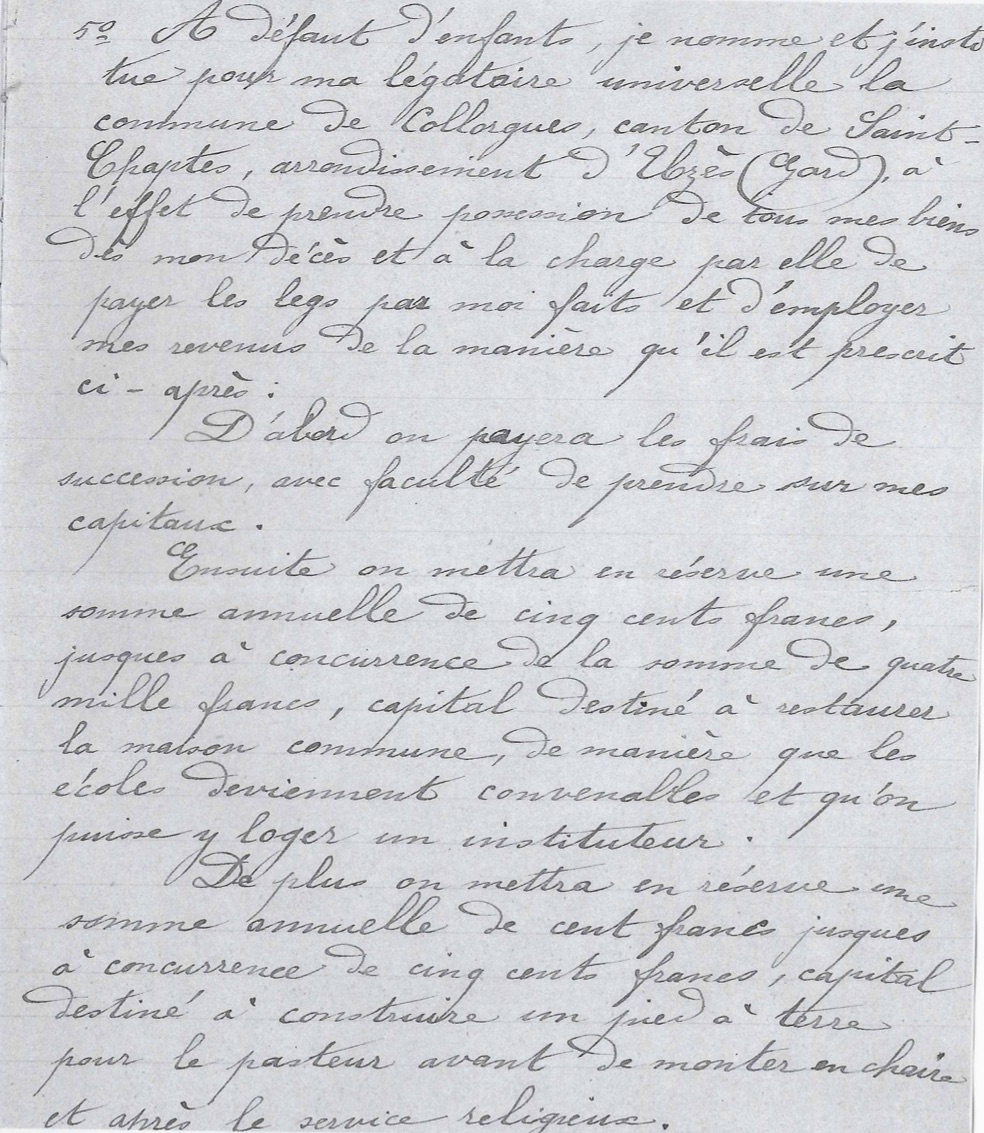 5º A défaut d'enfants, je nomme et j'insti
tue pour ma légataire universelle la
commune de Collorgues, canton de Saint-
Chaptes, arrondissement d'Uzès (Gard), à
l'effet de prendre possession de tous mes biens
dès mon décès et à la charge par elle de
payer les legs par moi faits et d'employer
mes revenus de la manière qu'il est prescrit
ci-après :
D'abord on payera les frais de
succession, avec faculté de prendre sur mes
capitaux.
Ensuite on mettra en réserve une
somme annuelle de cinq cents francs,
jusques à concurrence de la somme de quatre
mille francs, capital destiné à restaurer
la maison commune, de manière que les
écoles deviennent convenables et qu'on
puisse y loger un instituteur.
De plus on mettra en réserve une
somme annuelle de cent francs jusques
à concurrence de cinq cents francs, capital
destiné à construire un pied à terre
pour le pasteur avant de monter en chaire
et après le service religieux.